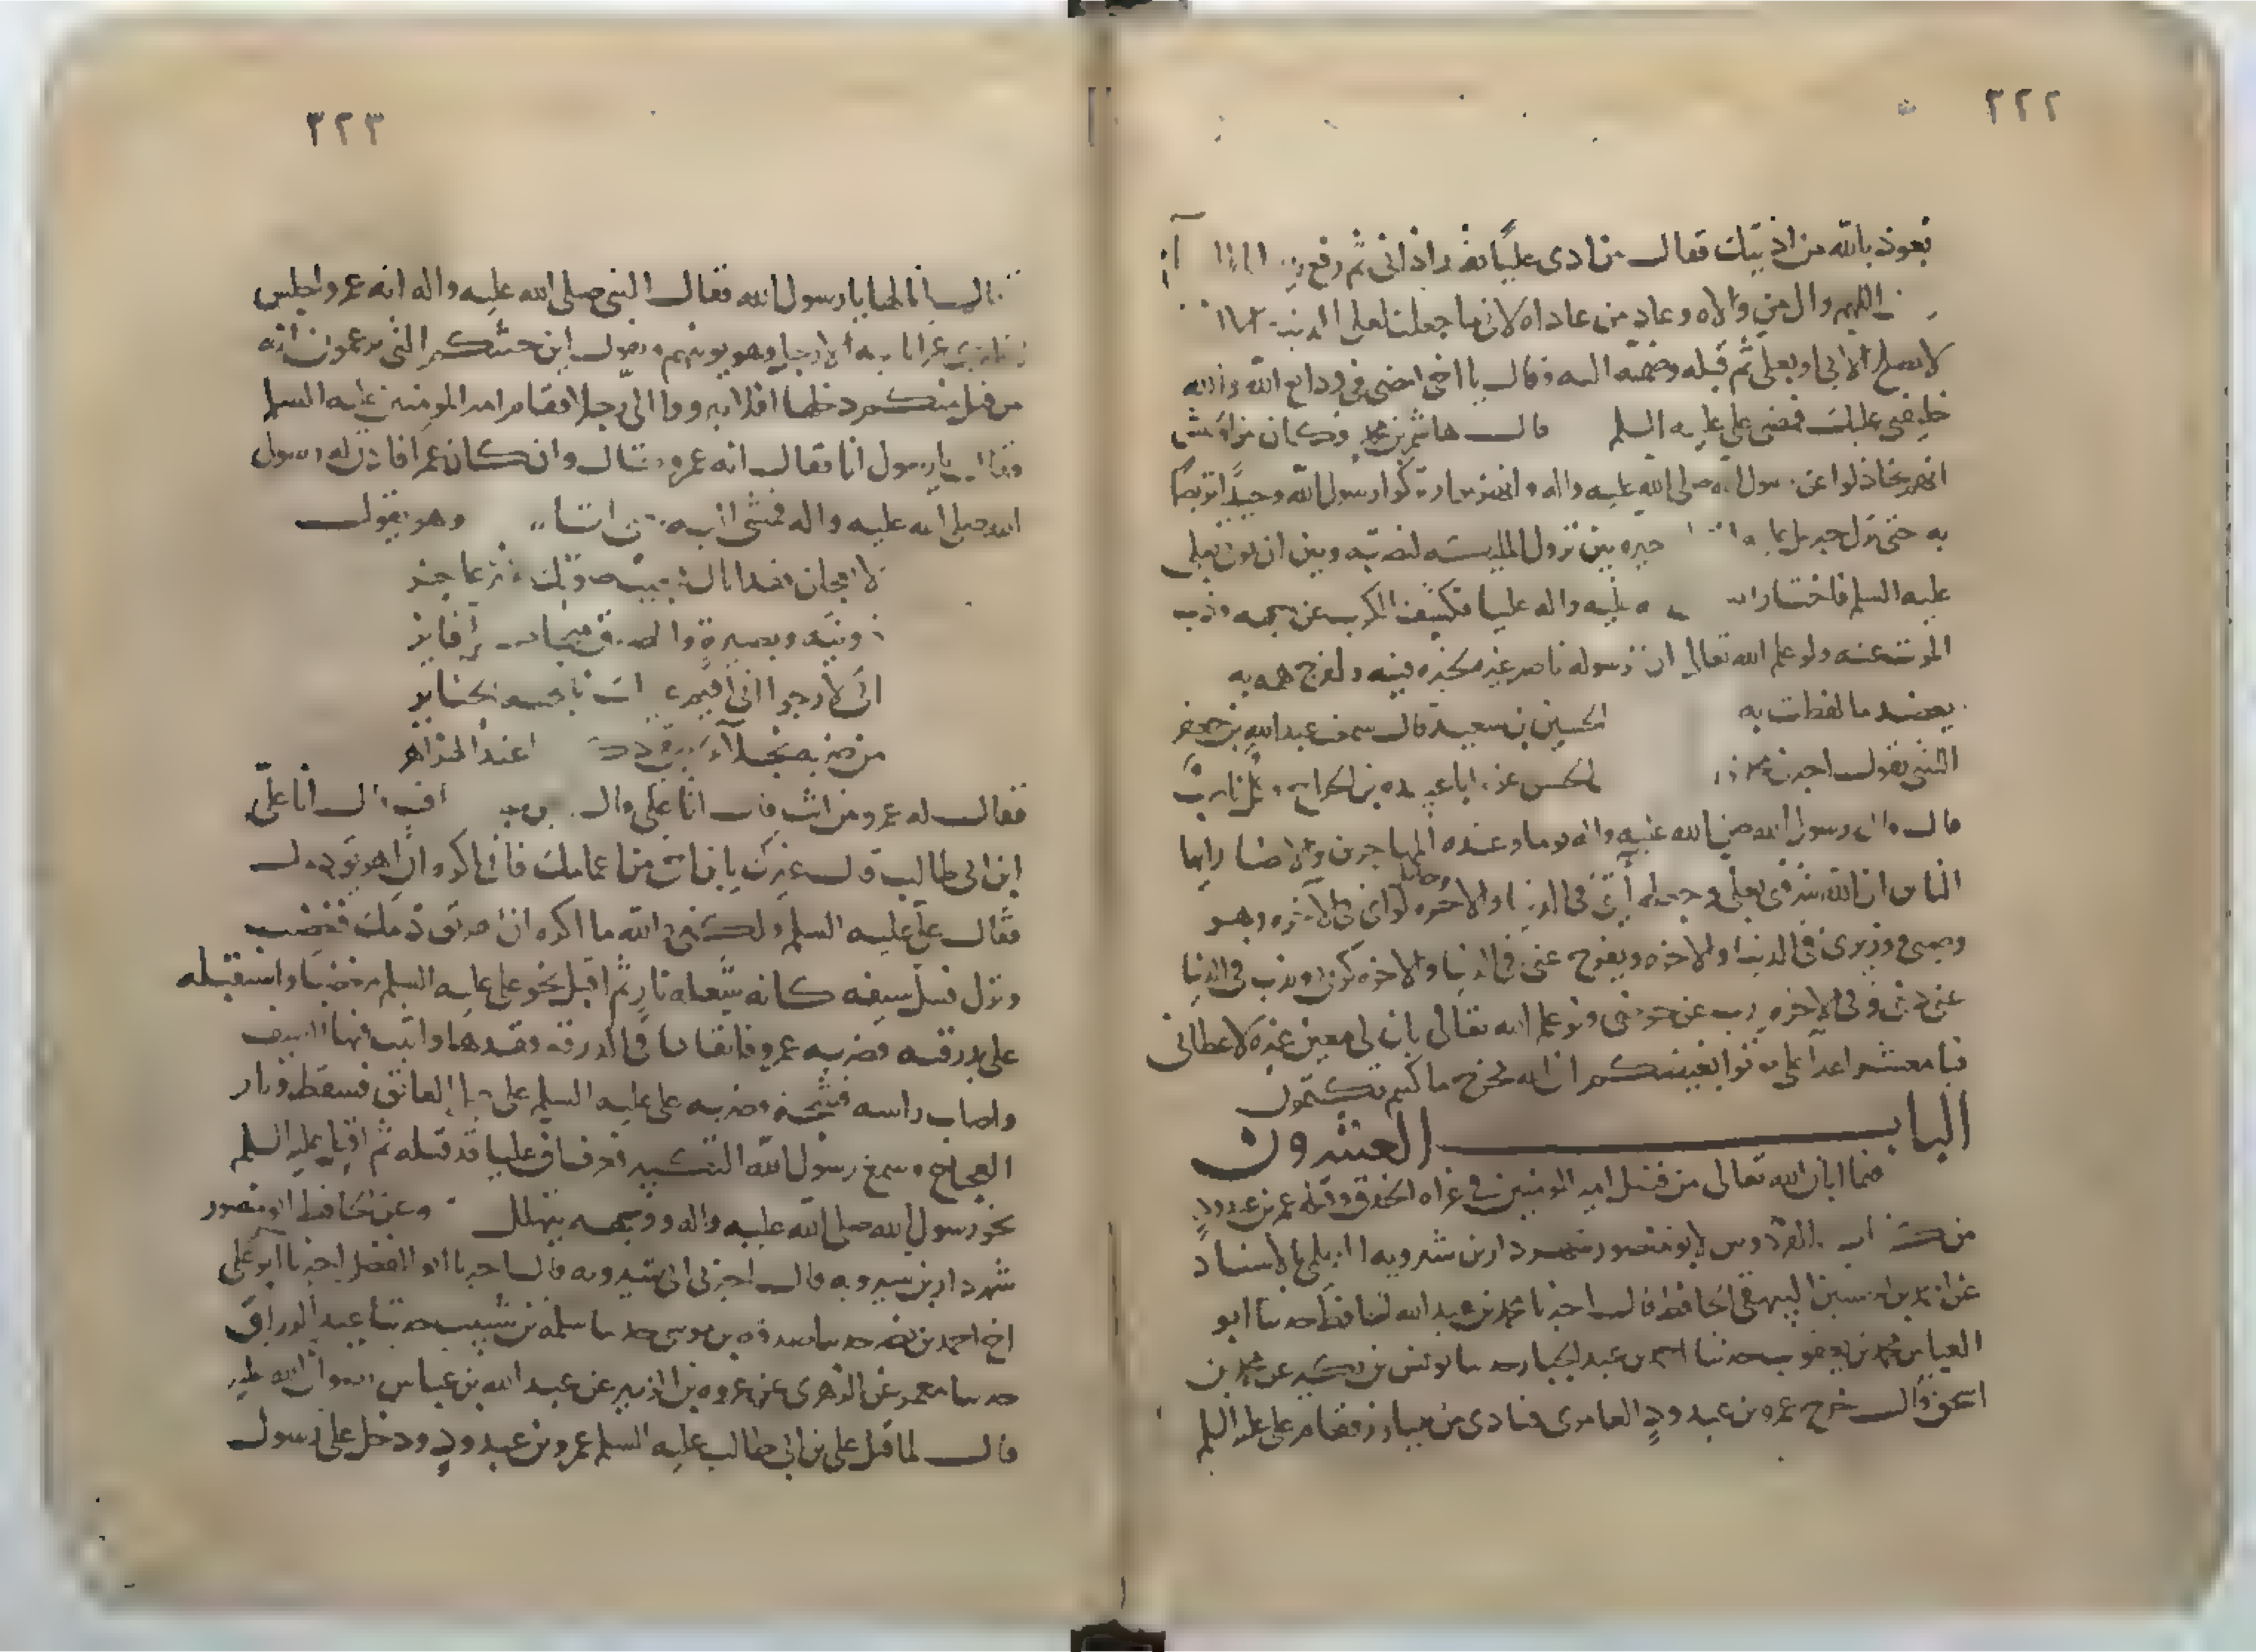 ٢٢٢
نعوذ بالله من اذيتك فقال من اذى عليا فقد اذانى ثم رفع
اللهم وال من والاه وعاد من عاداه لانى ما جعلت لعلى
لا يصلح الا بى او بعلى ثم قبله وضمه اليه وقال يا اخى امضى فى وداع الله والله
خليفتى عليك فمضى على عليه السلم قال هاشم بن محمد وكان من
انهم تخاذلوا عن رسول الله صلى الله عليه واله وتركوا رسول الله وحيدا
به حتى نزل جبريل خيره بين نزول الملئكه لنصرته وبين ان يعلى
عليه السلم فاختار عليه واله عليا فكشف الكرب عن وجهه وذب
الموت عنه ولو علم الله تعالى ان لرسوله ناصر غيره لخيره فيه ولفرج همه به
يعضد ما لفظت به الحسين بن سعيد قال سمعت عبد الله بن جعفر
يقول
قال قال رسول الله صلى الله عليه واله يوما وعنده المهاجرين والانصار ايها
الناس ان الله شرفى بعلى وجعله فى الدنيا والاخره وحامل لواى فى الاخره وهو
وصيى ووزيرى فى الدنيا والاخره ويفرج عنى فى الدنيا والاخره كربى ويذب فى الدنيا
عن دينى وفى الاخره يذب عن حوضى ولو علم الله تعالى بان لى معين غيره لاعطانى
فيا معشر اعدا على موتوا بغيضكم ان الله مخرج ما كنتم تكتمون
الباب العشرون
فيما ابان الله تعالى من فضل امير المومنين فى غزاه الخندق وقتله عمر بن عبد ود
من كتاب الفردوس لابو منصور شهردار بن شيرويه الديلمى بالاسناد
عن احمد بن الحسين البيهقى الحافظ قال اخبرنا محمد بن عبد الله الحافظ حدثنا ابو
العباس محمد بن يعقوب حدثنا احمد بن عبد الجبار حدثنا يونس بن بكير عن محمد بن
اسحق قال خرج عمرو بن عبد ود العامرى فنادى من يبارز فقام على عليه السلم
٢٢٣
فقال انا لها يا رسول الله فقال النبى صلى الله عليه واله انه عمرو اجلس
فنادى عمرا الا رجل وهو يونبهم ويقول اين جنتكم التى تزعمون انه
من قتل منكم دخلها افلا تبرزوا الى رجلا فقام امير المومنين عليه السلم
وقال يا رسول انا فقال انه عمرو فقال وان كان عمرا فاذن له رسول
الله صلى الله عليه واله فمشى اليه حتى اتاه وهو يقول
لا تعجلن فقد اتاك مجيب صوتك غير عاجز
ذو نيه وبصيرة والصدق منجا كل فايز
انى لارجوا ان اقيم عليك نايحه الجنايز
من ضربه نجلآء يبقى ذكرها عند الهزاهز
فقال له عمرو من انت قال انا على قال ابن عبد مناف قال انا على
ابن ابى طالب قال غيرك يا بن اخى من اعمامك فانى اكره ان اهريق دمك
فقال على عليه السلم ولكنى والله ما اكره ان اهريق دمك فغضب
ونزل فسل سيفه كانه شعله نار ثم اقبل نحو على عليه السلم مغضبا واستقبله
على بدرقته فضربه عمرو فاتقاها فى الدرقه فقدها واثبت فيها السيف
واصاب راسه فشجه وضربه على عليه السلم على حبل العاتق فسقط وثار
العجاج وسمع رسول الله التكبير فعرف ان عليا قد قتله ثم اقبل عليه السلم
نحو رسول الله صلى الله عليه واله ووجهه يتهلل وعن الحافظ ابو منصور
شهردار بن شيرويه قال اخبرنى ابى شيرويه قال اخبرنا ابو الفضل اخبرنا ابو على
احمد بن نصر حدثنا صدقه بن موسى حدثنا سلمه بن شبيب حدثنا عبد الرزاق
حدثنا معمر عن الزهرى عن عروه بن الزبير عن عبد الله بن عباس رضوان الله عليه
قال لما قتل على بن ابى طالب عليه السلم عمرو بن عبد ود ودخل على رسول